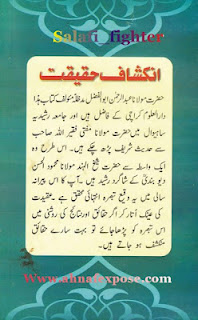 Salafi_fighter
انکشاف حقیقت
حضرت مولانا عبدالرحمٰن ابوالفضل مدظلہ مؤلف کتاب ہذا
دارالعلوم کراچی کے فاضل ہیں اور جامعہ رشیدیہ
ساہیوال میں حضرت مولانا مفتی فقیر اللہ صاحب
سے حدیث شریف پڑھ چکے ہیں۔ اس طرح وہ
ایک واسطہ سے حضرت شیخ الہند مولانا محمود الحسن
دیوبندیؒ کے شاگرد رشید ہیں۔ آپ کا اس پیرانہ
سالی میں یہ وقیع تبصرہ انتہائی محقق ہے۔ عقیدت
کی عینک اُتار کر اگر حقائق اور نتائج کی روشنی میں
اس تبصرہ کو پڑھا جائے تو بہت سارے حقائق
منکشف ہو جاتے ہیں۔
www.ahnafexpose.com